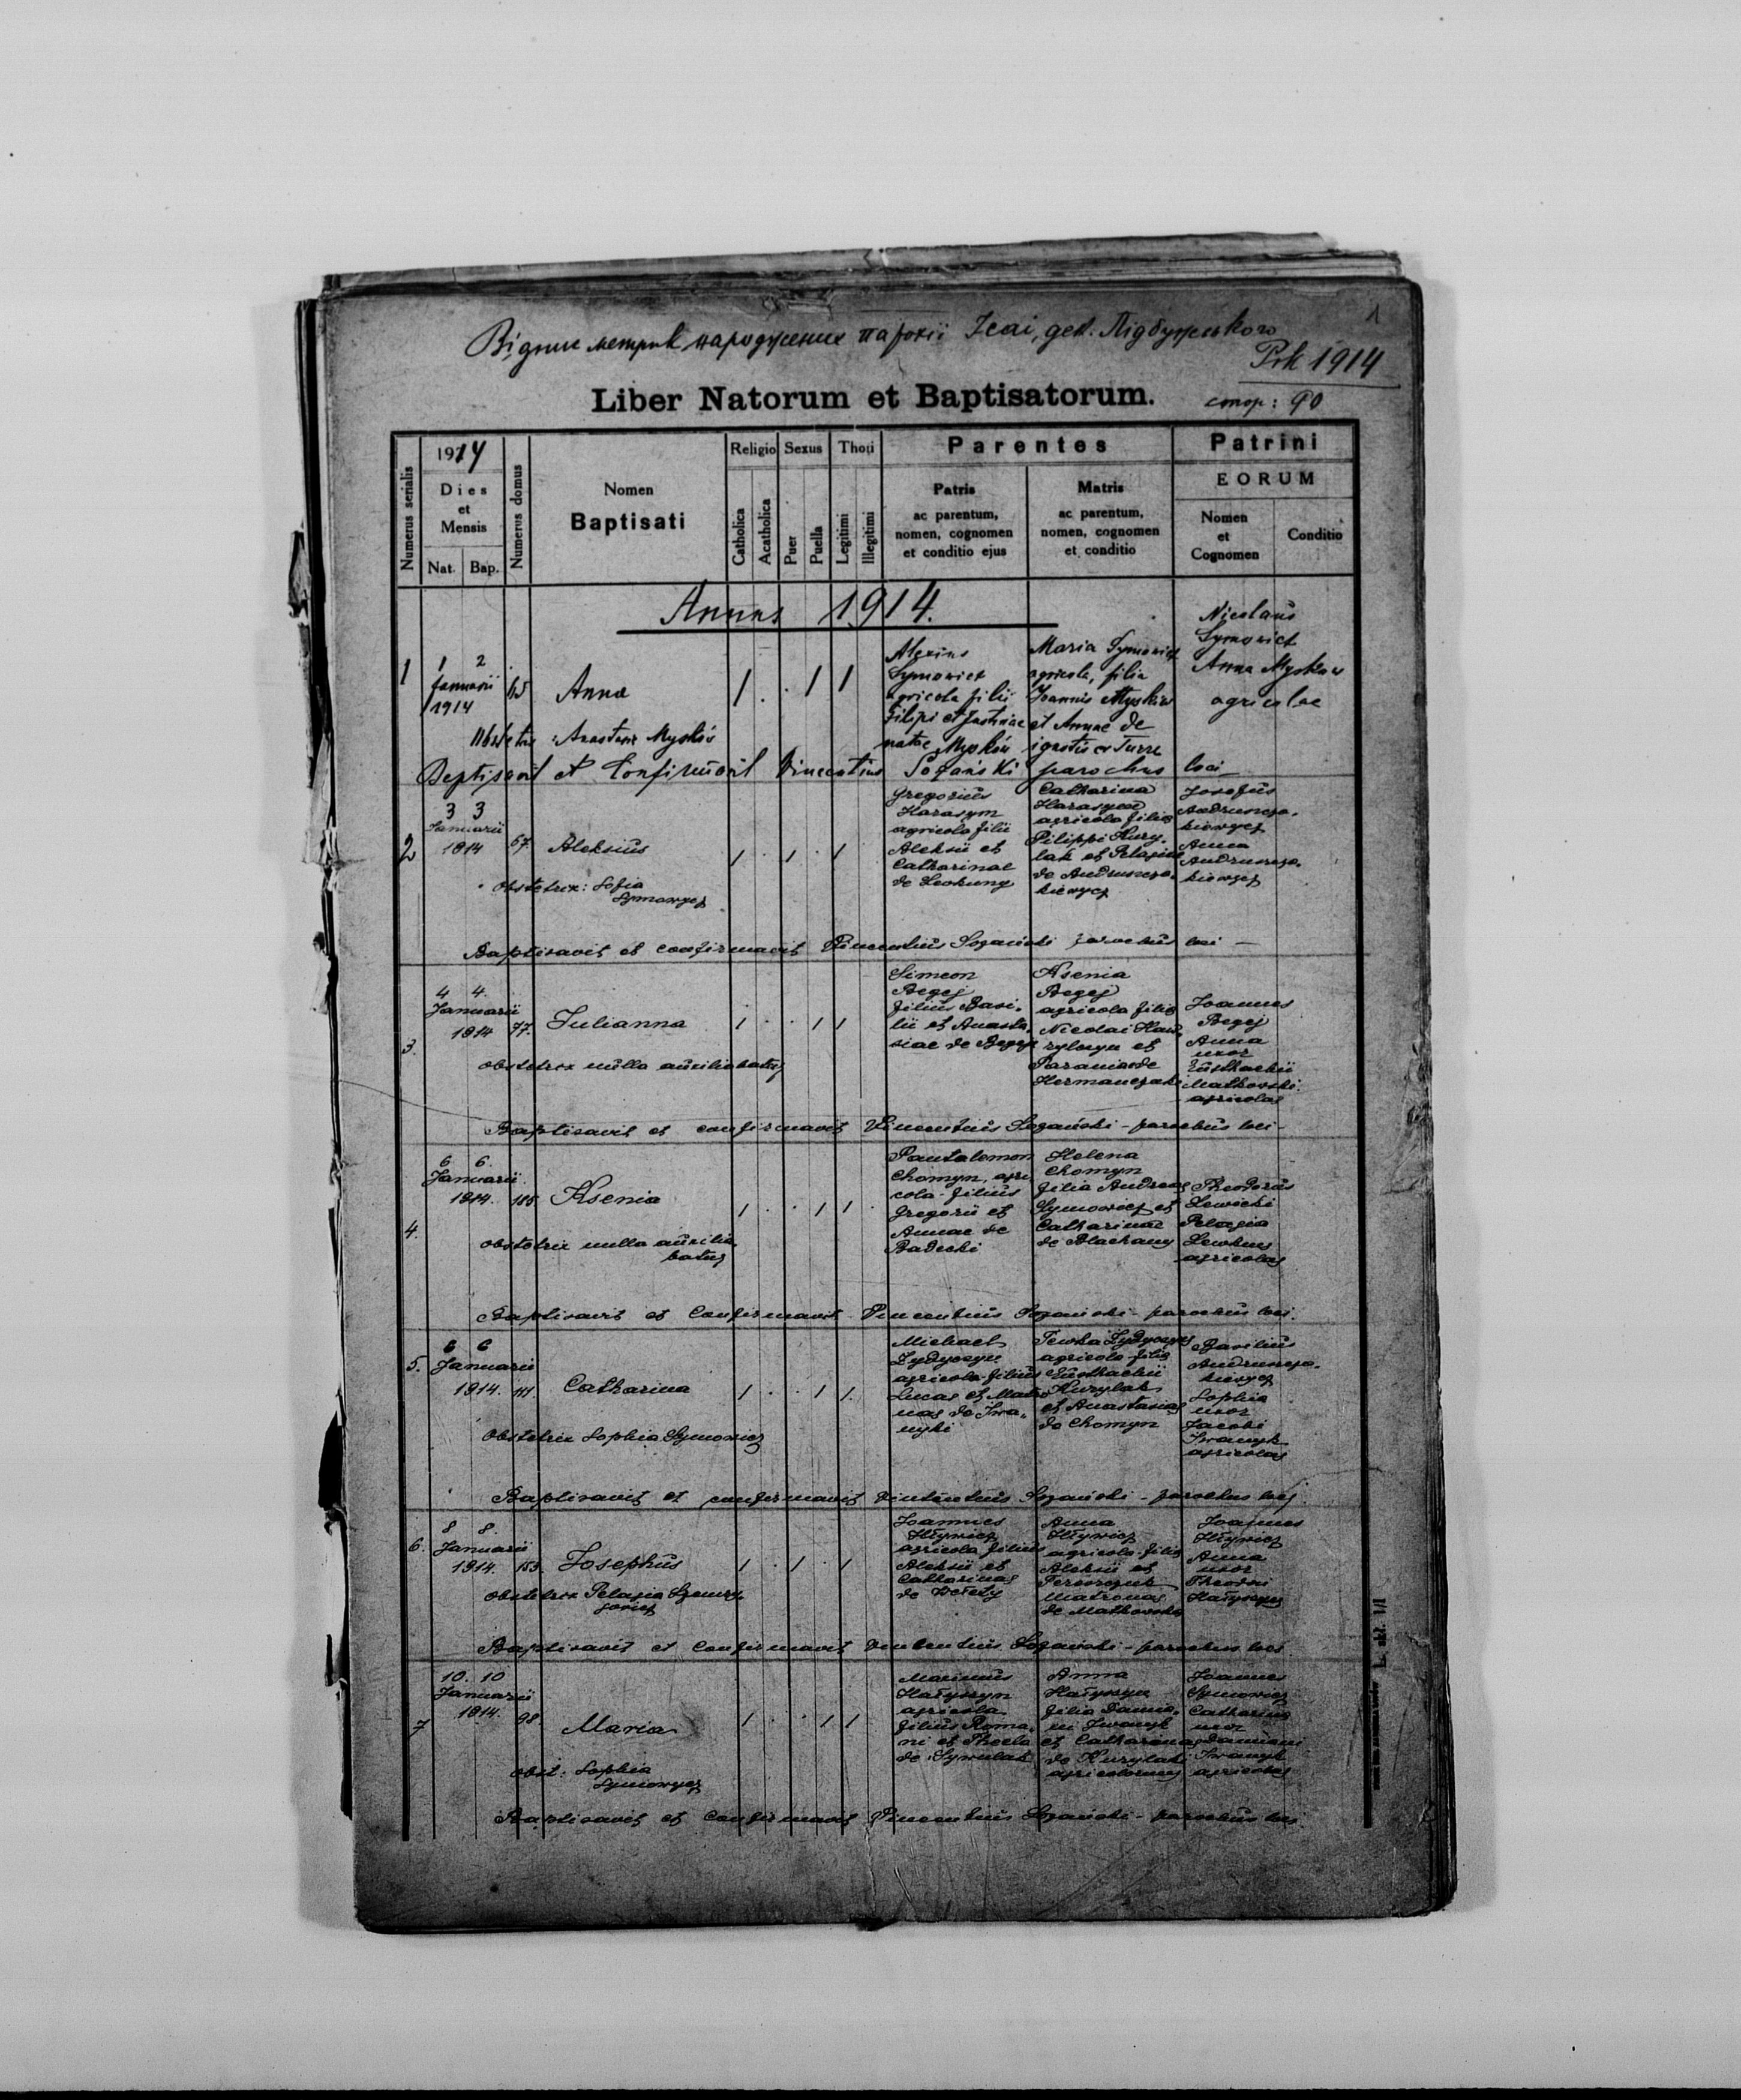 Відпис метрик народжених парохії Ісаі, дек. Підбужського
1
Рік 1914
стор: 90
Liber Natorum et Baptisatorum.
Numerus serialis
1914
Dies
et
Mensis
Nat. Bap.
Numerus domus
Nomen
Baptisati
Religio Sexus Thori
Catholica Acatholica Puer Puella Legitimi Illegitimi
Parentes
Patris
ac parentum,
nomen, cognomen
et conditio ejus
Matris
ac parentum,
nomen, cognomen
et conditio
Patrini
EORUM
Nomen
et
Cognomen
Conditio
Annus 1914.
1
1 2
Januarii
1914
Anna
1 . . 1 1
Alexius
Symowicz
agricola filii
Filipi et Justinae
natae Myskiw
Maria Symowicz
agricola, filia
Joannis Myskiw
et Annae de
Nicolaus
Symowicz
Anna Myskiw
agricolae
Baptisavit et Confirmavit Vincentius Sozański parochus loci
2
3 3
Januarii
1914 67 Aleksius
1 . 1 . 1
Obstetrix: Sofia
Symowycz
Gregorius
Harasym
agricola filii
Aleksii et
Catharinae
de
Catharina
Harasym
agricola filia
Pilippi Kury-
lak et Pelagiae
de Andruneza-
kiewycz
Josefus
Andruneza-
kiewycz
Anna
Andruneza-
kiewycz
Baptisavit et confirmavit Vincentius Sozański parochus loci —
3.
4 4.
Januarii
1914 77. Julianna
1 . . 1 1
obstetrix nulla auxiliabatur
Simeon
Begej
filius Basi-
lii et Anasta-
siae de Begej
Ksenia
Begej
agricola filia
Nicolai
et
Paraniae de
Hermanczaki
Joannes
Begej
Anna
uxor
Eustachii
Matkowski
agricolae
Baptisavit et confirmavit Vincentius Sozański - parochus loci -
4.
6 6.
Januarii
1914. 188. Ksenia
1 . . 1 1
obstetrix nulla auxilia-
batur
Pantalemon
Chomyn, agri
cola - filius
Gregorii et
Annae de
Badecki
Helena
Chomyn
filia Andreae
Symowicz et
Catharinae
de Blachany
Theodorus
Lewicki
Pelagia
agricolae
Baptisavit et Confirmavit Vincentius Sozański - parochus loci.
5.
6 6
Januarii
1914. 111. Catharina
1 . . 1 1.
Obstetrix Sophia Symowicz
Michael
Zydyczyn
agricola - filius
Lucae et Matro-
nae de Iwa-
nyki
Tewka Zydyczyn
agricola filia
Eustachii
Kurylak
et Anastasiae
de Chomyn
Basilius
Andruneza-
kiewycz
Sophia
uxor
Jacobi
Iwanyk
agricolae
Baptisavit et confirmavit Vincentius Sozański - parochus loci
6.
8 8.
Januarii
1914. 153. Josephus
1 . 1 . 1
obstetrix Pelagia
Joannes
Iłlywicz
agricola filius
Aleksii et
Catharinae
de
Anna
Iłlywicz
agricola - filia
Aleksii et
Matronae
de Matkowski
Joannes
Iłlywicz
Anna
uxor
Theodori
Hałyszyn
Baptisavit et Confirmavit Vincentius Sozański - parochus loci
7
10. 10
Januarii
1914. 98. Maria
1 . . 1 1
obst: Sophia
Symowycz
Marinus
Hałyszyn
agricola
filius Roma-
ni et Thecla
de Synulak
Anna
Hałyszyn
filia Damia-
ni Iwanyk
et Catharinae
de Kurylak
agricolarum
Joannes
Symowicz
Catharina
uxor
Damiani
Iwanyk
agricolae
Baptisavit et Confirmavit Vincentius Sozański - parochus loci.